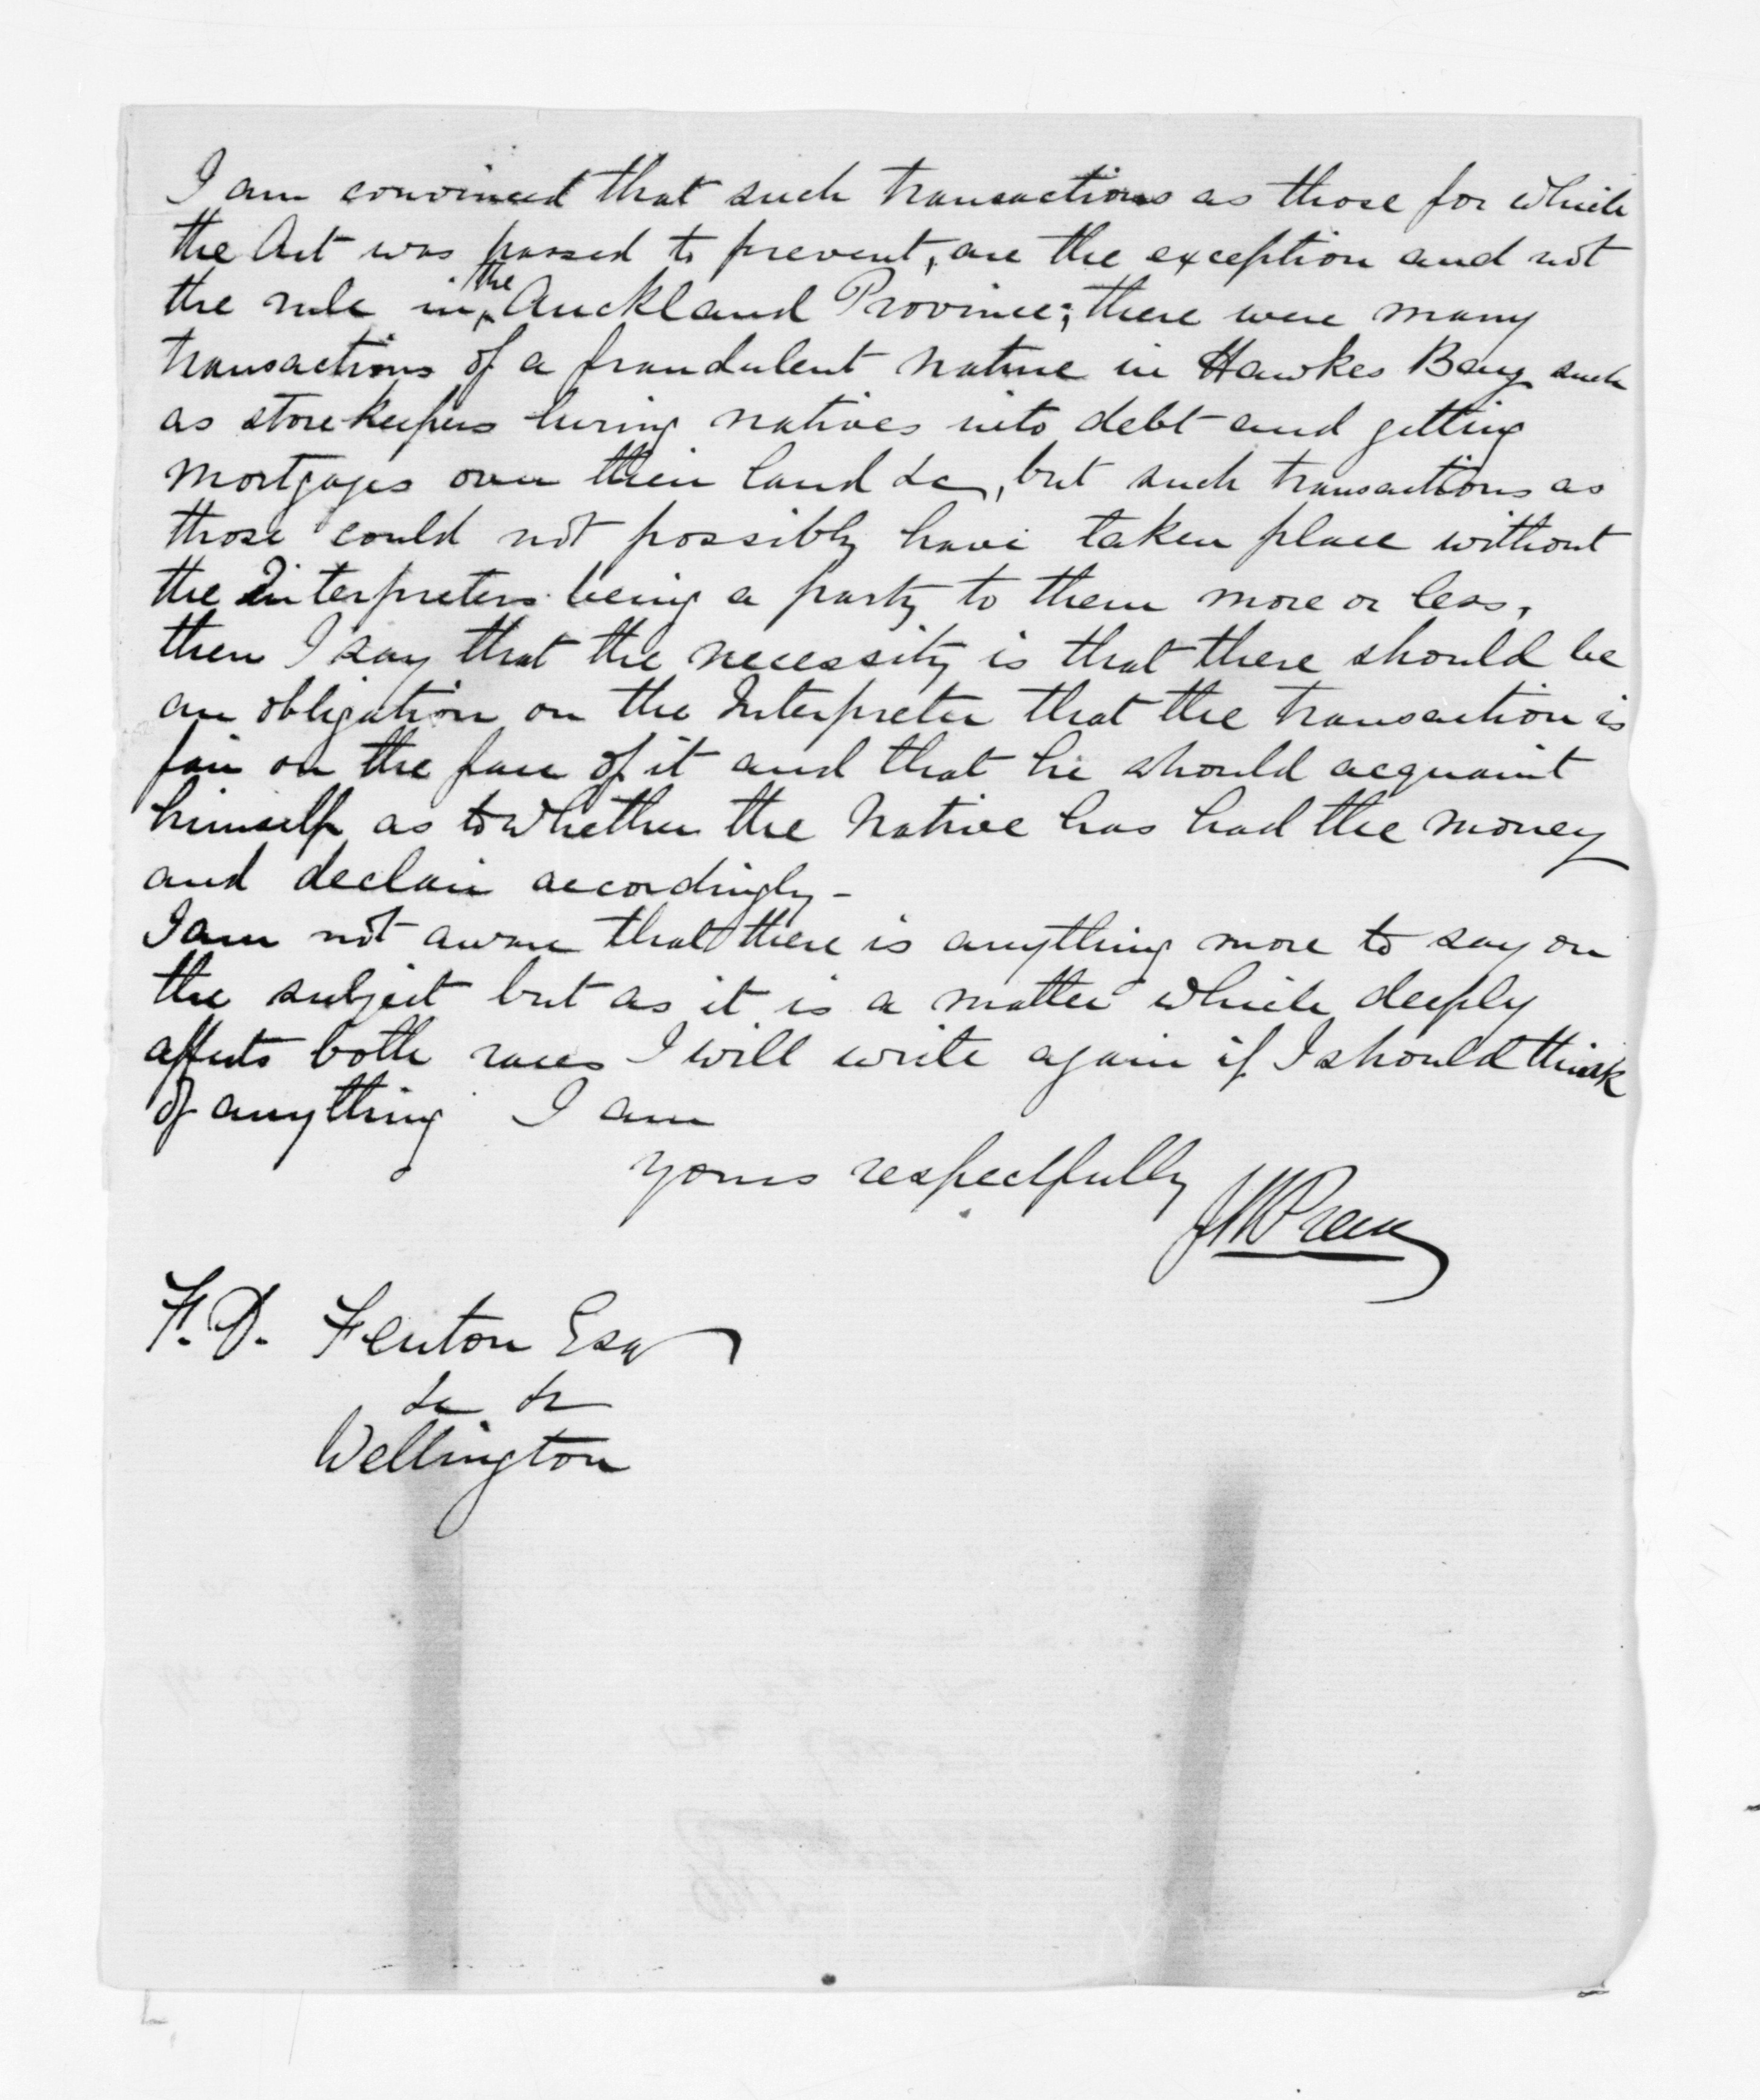 I am convinced that such transactions as those for which
the Act was passed to prevent, are the exception and not
the rule in the Auckland Province; there were many
transactions of a fraudulent nature in Hawkes Bay such
as storekeepers luring natives into debt and getting
mortgages over their land &c, but such transactions as
those could not possibly have taken place without
the Interpreters being a party to them more or less,
then I say that the necessity is that there should be
an obligation on the Interpreter that the transaction is
fair on the face of it and that he should acquaint
himself as to whether the Native has had the money
and declair accordingly -
I am not aware that there is anything more to say on
the subject but as it is a matter which deeply
affects both races I will write again if I should think
of anything I am
yours respectfully
JWPreece
F. D. Fenton Esq
&c &c
Wellington